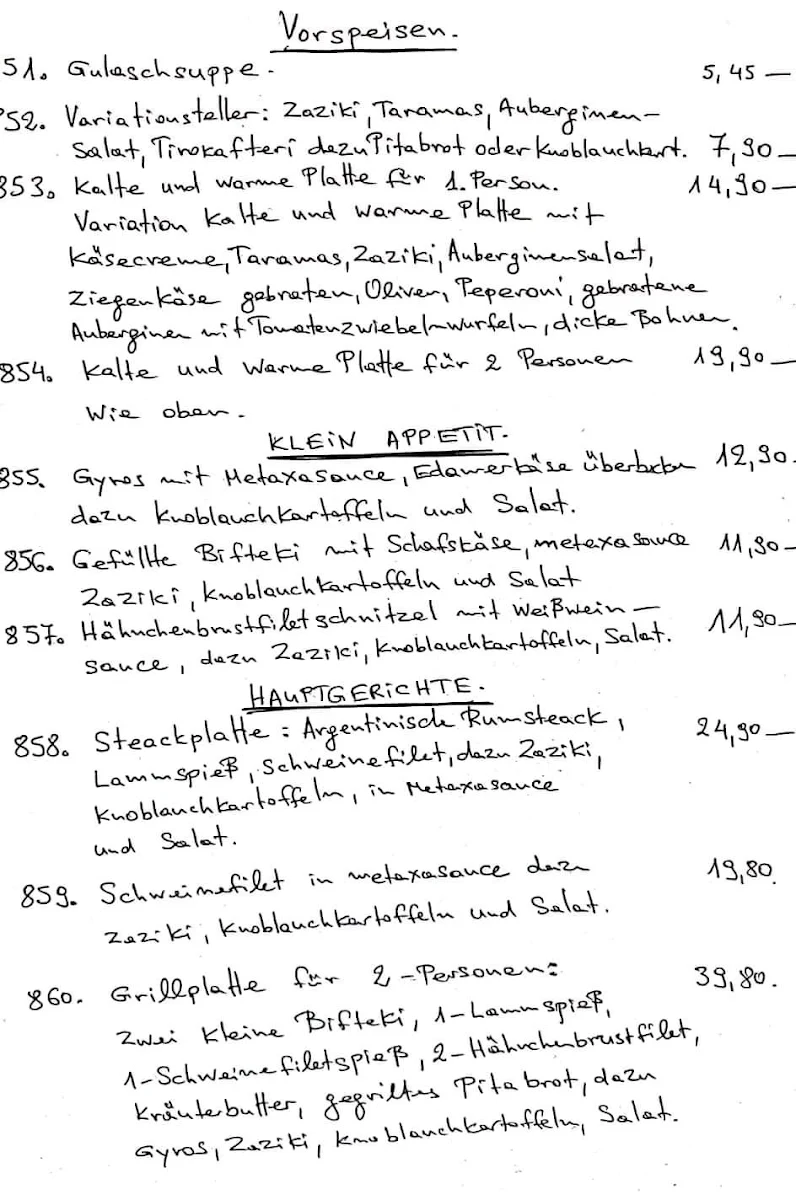 Vorspeisen.
51. Gulaschsuppe. 5,45 —
852. Variationsteller: Zaziki, Taramas, Auberginen-
Salat, Tirokafteri dazu Pitabrot oder Knoblauchbrot. 7,90 —
853. Kalte und warme Platte für 1. Person. 14,90 —
Variation Kalte und warme Platte mit
Käsecreme, Taramas, Zaziki, Auberginensalat,
Ziegenkäse gebraten, Oliven, Peperoni, gebratene
Auberginen mit Tomatenzwiebelnwurfeln, dicke Bohnen.
854. Kalte und warme Platte für 2 Personen 19,90 —
Wie oben.
KLEIN APPETIT.
855. Gyros mit Metaxasauce, Edamerkäse überbacken 12,90.
dazu Knoblauchkartoffeln und Salat.
856. Gefüllte Bifteki mit Schafskäse, metaxasauce 11,90 —
Zaziki, Knoblauchkartoffeln und Salat
857. Hähnchenbrustfilet schnitzel mit Weißwein — 11,90 —
sauce, dazu Zaziki, Knoblauchkartoffeln, Salat.
HAUPTGERICHTE.
858. Steackplatte: Argentinische Rumsteack, 24,90 —
Lammspieß, Schweinefilet, dazu Zaziki,
Knoblauchkartoffeln, in Metaxasauce
und Salat.
859. Schweinefilet in metaxasauce dazu 19,80.
Zaziki, Knoblauchkartoffeln und Salat.
860. Grillplatte für 2-Personen: 39,80.
Zwei kleine Bifteki, 1-Lammspieß,
1-Schweinefiletspieß, 2-Hähnchenbrustfilet,
Kräuterbutter, gegrilltes Pitabrot, dazu
Gyros, Zaziki, Knoblauchkartoffeln, Salat.